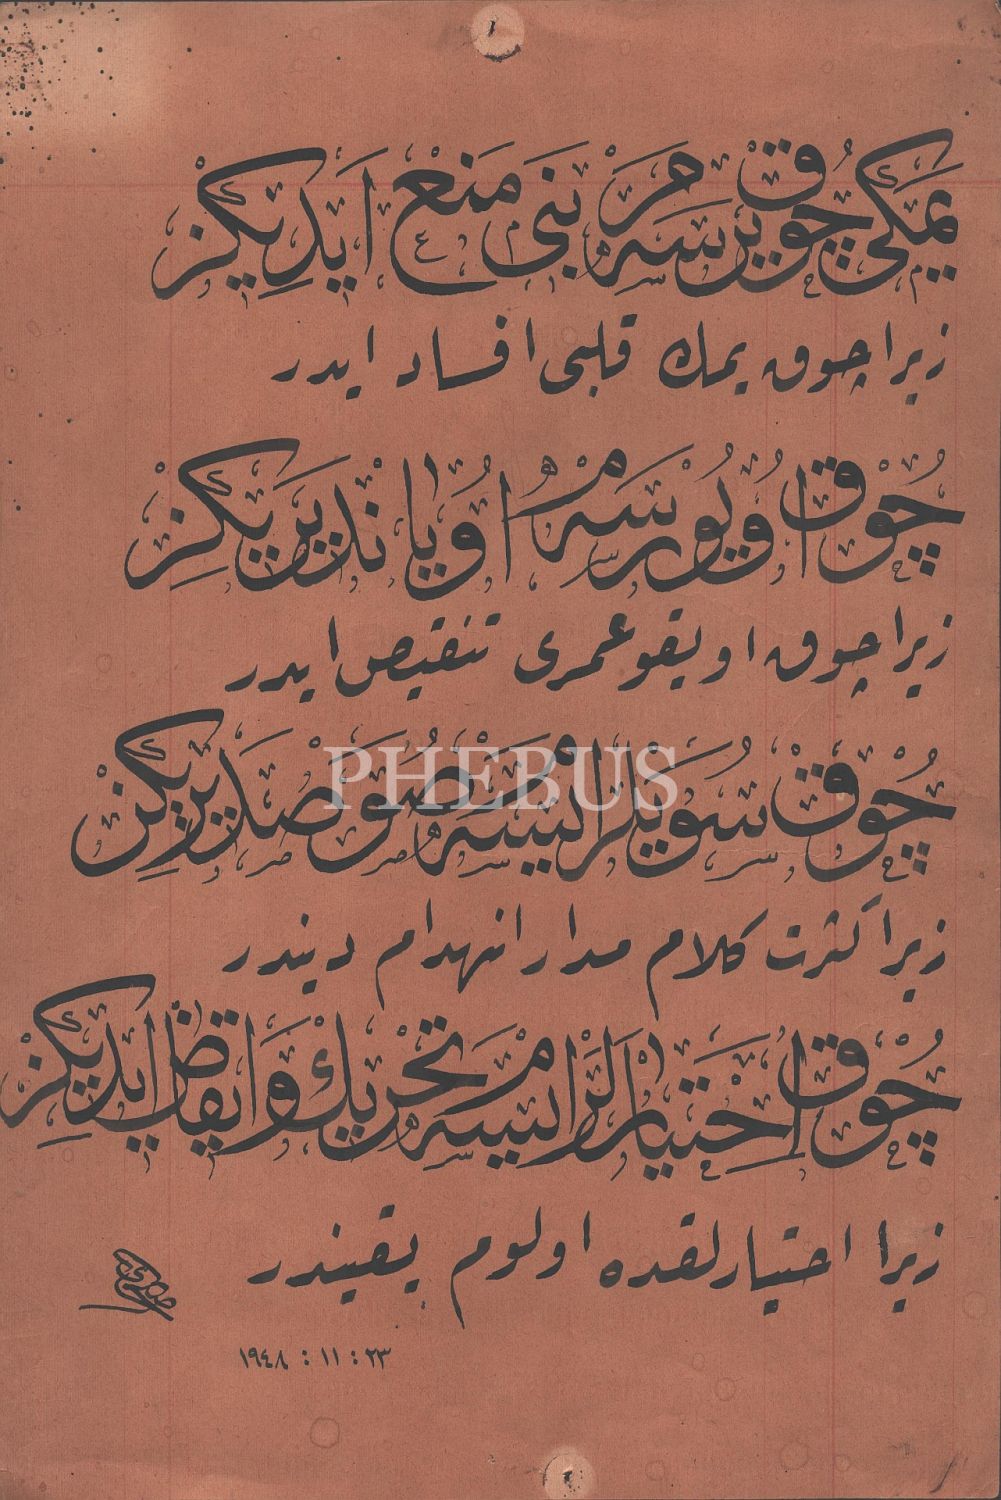 یمكی چوق یرسه‌م بنی منع ایدیكز
زیرا چوق یمك قلبی افساد ایدر
چوق اویورسه‌م اویاندیریكز
زیرا چوق اویقو عمری تنقیص ایدر
PHEBUS
چوق سویلرایسه‌م صوصدیریكز
زیرا كثرت كلام مدار انهدام دیندر
چوق اختیارلرایسه‌م تحریك وایقاظ ایدیكز
زیرا اختیارلقده اولوم یقیندر
٢٣ : ١١ : ١٩٤٨